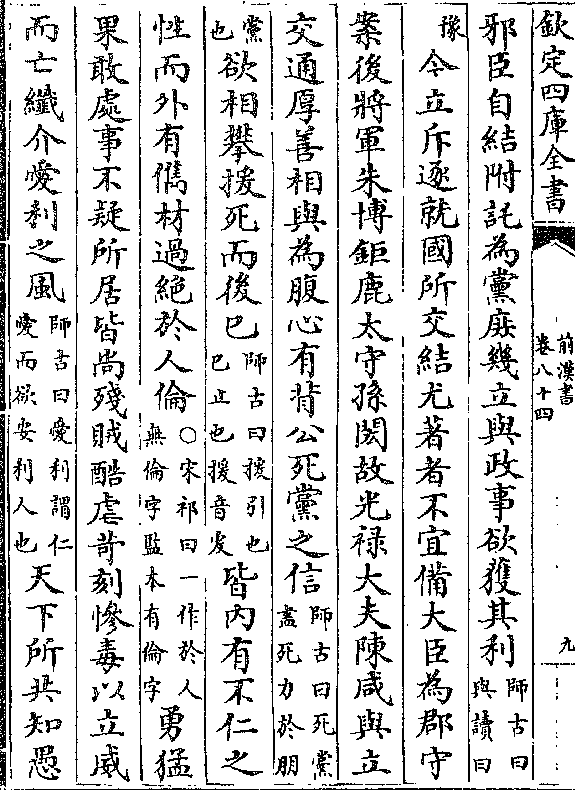 欽定四庫全書
前漢書
卷八十四
九
邪臣自結附託為黨庶幾立與政事欲獲其利師古曰與讀曰
豫今立斥逐就國所交結尤著者不宜備大臣為郡守
案後將軍朱博鉅鹿太守孫閎故光祿大夫陳咸與立
交通厚善相與為腹心有背公死黨之信師古曰死黨盡死力於朋
黨也欲相攀援死而後已師古曰援引也已止也援音爰皆內有不仁之
性而外有儁材過絕於人倫○宋祁曰一作於人無倫字監本有倫字勇猛
果敢處事不疑所居皆尚殘賊酷虐苛刻慘毒以立威
而亡纖介愛利之風師古曰愛利謂仁愛而欲安利人也天下所共知愚